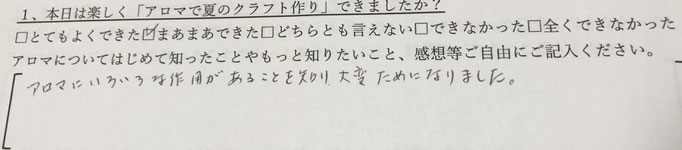 1、本日は楽しく「アロマで夏のクラフト作り」できましたか？
□とてもよくできた☑まあまあできた□どちらとも言えない□できなかった□全くできなかった
アロマについてはじめて知ったことやもっと知りたいこと、感想等ご自由にご記入ください。
アロマにいろいろな作用があることを知り、大変ためになりました。